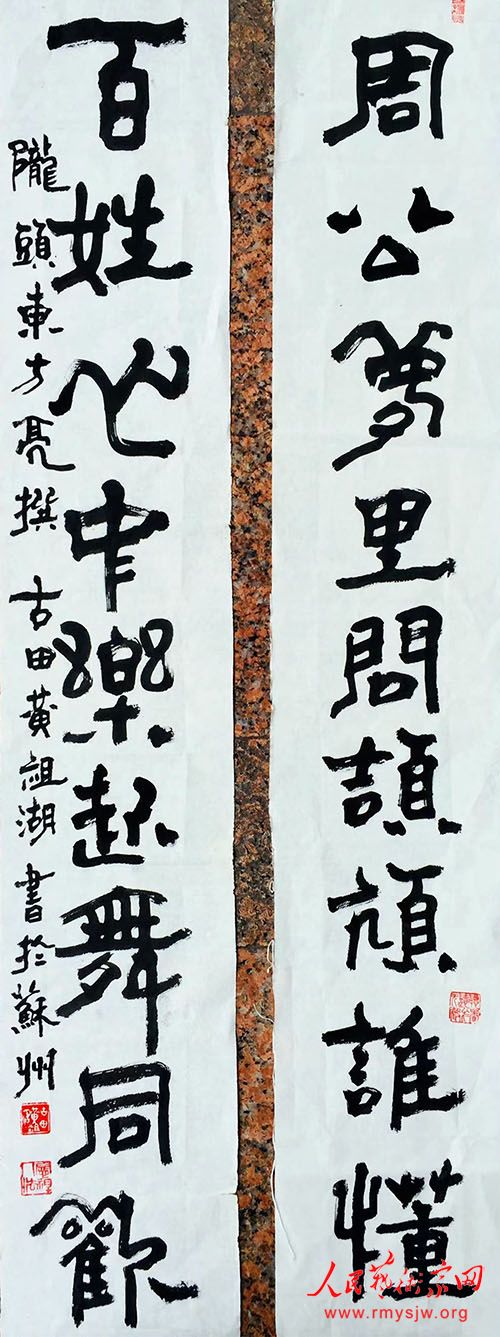 周公夢里問頡頏誰懂
百姓心中樂起舞同歡
隴頭東方亮撰 古田黄祖湖書於蘇州
人民艺术家网
www.rmysjw.org